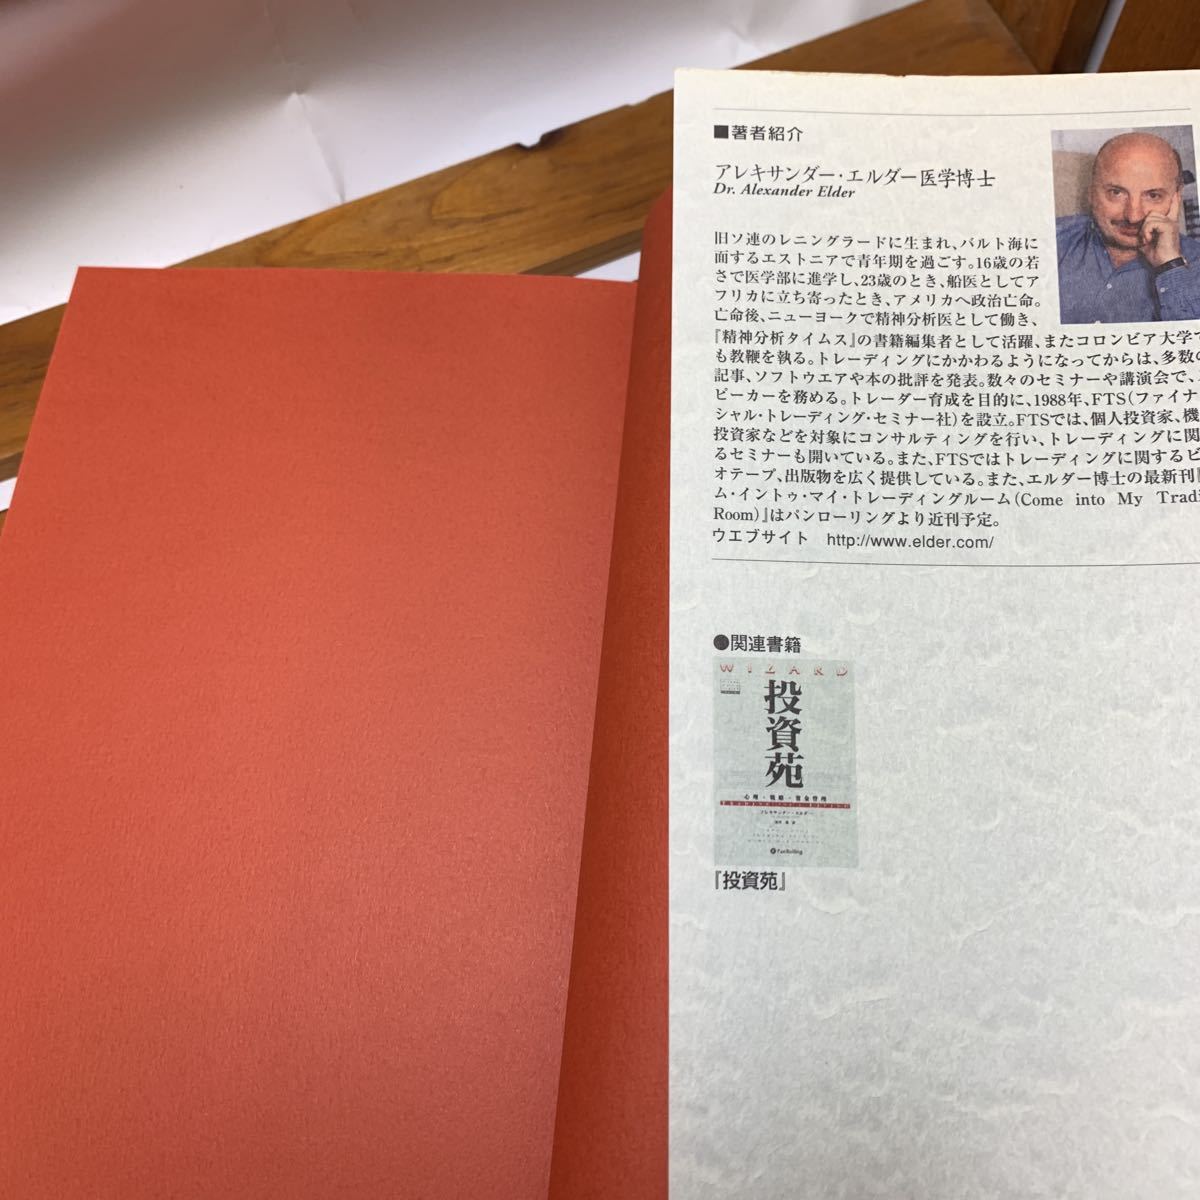 ■著者紹介
アレキサンダー・エルダー医学博士
Dr. Alexander Elder
旧ソ連のレニングラードに生まれ、バルト海に
面するエストニアで青年期を過ごす。16歳の若
さで医学部に進学し、23歳のとき、船医としてア
フリカに立ち寄ったとき、アメリカへ政治亡命。
亡命後、ニューヨークで精神分析医として働き、
『精神分析タイムス』の書籍編集者として活躍、またコロンビア大学で
も教鞭を執る。トレーディングにかかわるようになってからは、多数の
記事、ソフトウエアや本の批評を発表。数々のセミナーや講演会で、
ピーカーを務める。トレーダー育成を目的に、1988年、FTS(ファイナ
シャル・トレーディング・セミナー社)を設立。FTSでは、個人投資家、機
投資家などを対象にコンサルティングを行い、トレーディングに関
るセミナーも開いている。また、FTSではトレーディングに関するビ
オテープ、出版物を広く提供している。また、エルダー博士の最新刊『
ム・イントゥ・マイ・トレーディングルーム(Come into My Tradi
Room)』はパンローリングより近刊予定。
ウエブサイト http://www.elder.com/
●関連書籍
WIZARD
投資苑
心理・戦略・資金管理
アレキサンダー・エルダー
PanRolling
『投資苑』